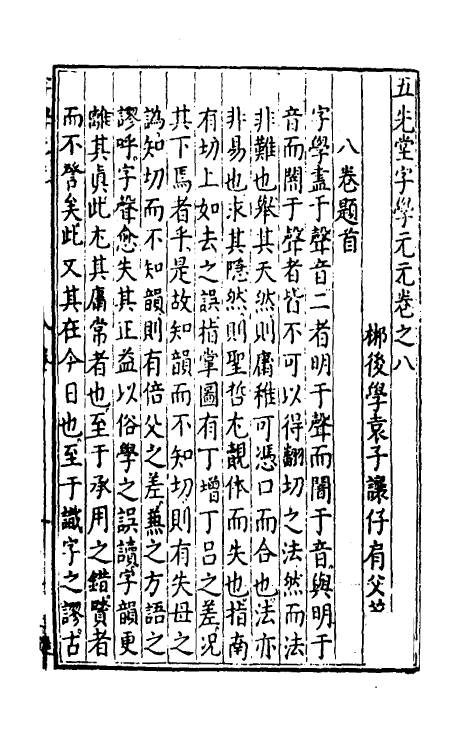 五先堂字學元元卷之八
郴後學袁子讓仔肩父著
八卷題首
字學盡于聲音二者明于聲而闇于音與明于
音而闇于聲者皆不可以得翻切之法然而法
非難也舉其天然則庸稚可憑口而合也法亦
非易也求其隱然則聖哲尤靦体而失也指南
有切上如去之誤指掌圖有丁增丁呂之差况
其下焉者乎是故知韻而不知切則有失母之
譌知切而不知韻則有倍父之差蕪之方語之
謬呼字聲愈失其正益以俗學之誤讀字韻更
離其眞此尤其庸常者也至于承用之錯賢者
而不詧矣此又其在今日也至于識字之謬古